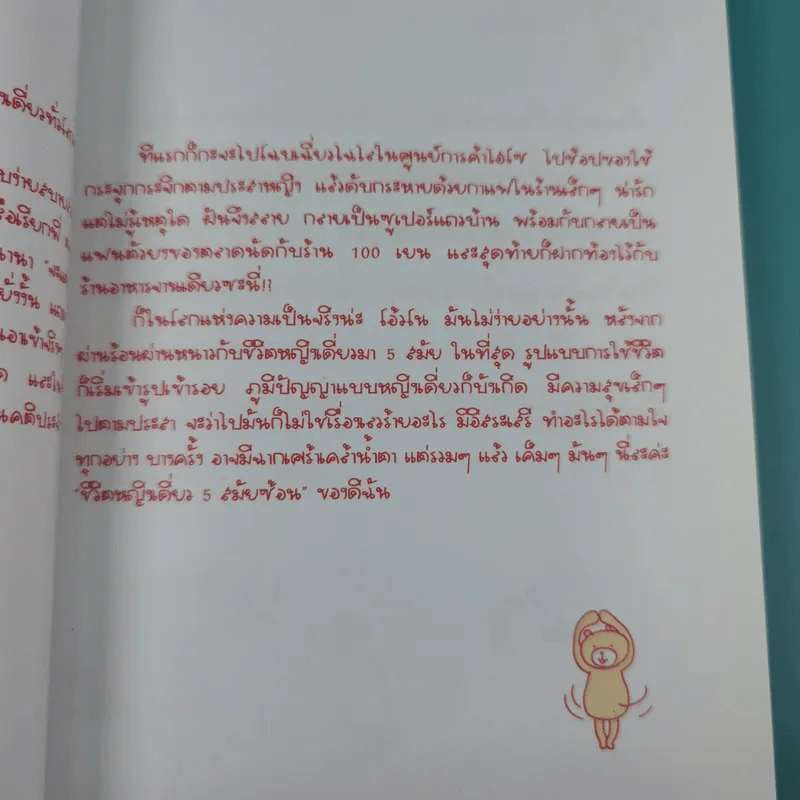 นเดี่ยวที่
ทีแรกก็กะจะไปโฉบเฉี่ยวไฉไลในศูนย์การค้าไฮโซ ไปช้อปของใช้
กระจุกกระจิกตามประสาหญิง แล้วดับกระหายด้วยกาแฟในร้านเล็กๆ น่ารัก
แต่ไม่รู้เหตุใด ฝันจึงสลาย กลายเป็นซูเปอร์แถวบ้าน พร้อมกับกลายเป็น
แฟนตัวยงของตลาดนัดกับร้าน 100 เยน และสุดท้ายก็ฝากท้องไว้กับ
ร้านอาหารจานเดียวซะนี่!!
ก็ในโลกแห่งความเป็นจริงน่ะ โอ้วโน มันไม่ง่ายอย่างนั้น หลังจาก
ผ่านร้อนผ่านหนาวกับชีวิตหญิงเดี่ยวมา 5 สมัย ในที่สุด รูปแบบการใช้ชีวิต
ก็เริ่มเข้ารูปเข้ารอย ภูมิปัญญาแบบหญิงเดี่ยวก็บันเกิด มีความสุขเล็กๆ
ไปตามประสา จะว่าไปมันก็ไม่ใช่เรื่องเลวร้ายอะไร มีอิสระเสรี ทำอะไรได้ตามใจ
ทุกอย่าง บางครั้ง อาจมีฉากเศร้าเคล้าน้ำตา แต่รวมๆ แล้ว เค็มๆ มันๆ นี่ละค่ะ
"ชีวิตหญิงเดี่ยว 5 สมัยซ้อน" ของดิฉัน